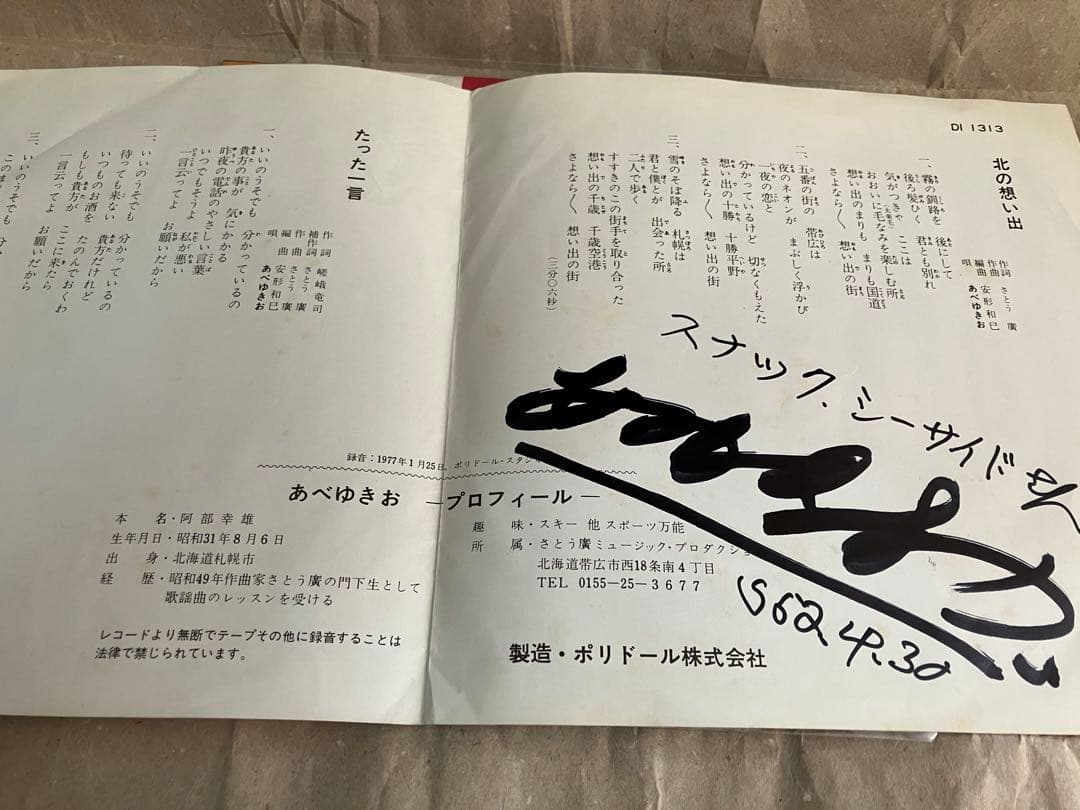 DI 1313
北の想い出
作詞 さとう 廣
作曲
編曲 安形和巳
唄 あべゆきお
一、霧の釧路を 後にして
後ろ髪ひく 君とも別れ
気がつきゃ ここは
おおいに毛なみを楽しむ所
想い出のまりも まりも国道
さよなら〱 想い出の街
二、五番の街の 帯広は
夜のネオンが まぶしく浮かび
一夜の恋と
分かっているけど 切なくもえた
想い出の十勝 十勝平野
さよなら〱 想い出の街
三、雪のそぼ降る 札幌は
君と僕とが 出会った所
二人で歩く
すすきのこの街手を取り合った
想い出の千歳 千歳空港
さよなら〱 想い出の街
(三分〇六秒)
スナック、シーサイド
S52.4.30
たった一言
作詞 嵯峨竜司
補作詞 さとう 廣
作曲 さとう 廣
編曲 安形和巳
唄 あべゆきお
一、いいのうそでも 分かっているの
貴方の事が 気にかかる
昨夜の電話のやさしい言葉
いつでもそうよ 私が悪い
一言云ってよ お願いだから
二、いいのうそでも 分かっているの
待っても来ない 貴方だけれど
いつものお酒を たのんでおくわ
もしも貴方が ここに来たら
一言云ってよ お願いだから
三、いいのうそでも
録音:1977年1月25日、ポリドール・スタジ
あべゆきお ―プロフィール―
本名・阿部幸雄
生年月日・昭和31年8月6日
出身・北海道札幌市
経歴・昭和49年作曲家さとう廣の門下生として
歌謡曲のレッスンを受ける
趣味・スキー 他 スポーツ万能
所属・さとう廣ミュージック・プロダクショ
北海道帯広市西18条南4丁目
TEL 0155-25-3677
レコードより無断でテープその他に録音することは
法律で禁じられています。
製造・ポリドール株式会社